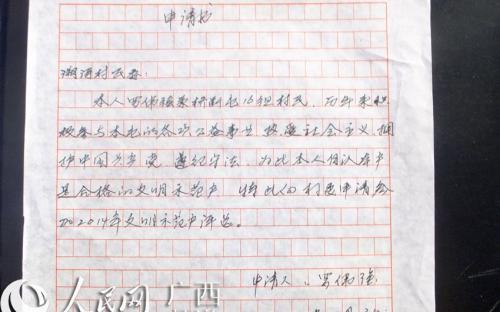 申请书
湖洞村民委:
本人罗伟强系桥断屯16组村民,历年来积
极参与本屯的各项公益事业,热爱社会主义,拥
护中国共产党,遵纪守法,为此本人自认本户
是合格的文明示范户,特此向村委申请参
加2014年文明示范户评选。
申请人:罗伟强
人民网 广西